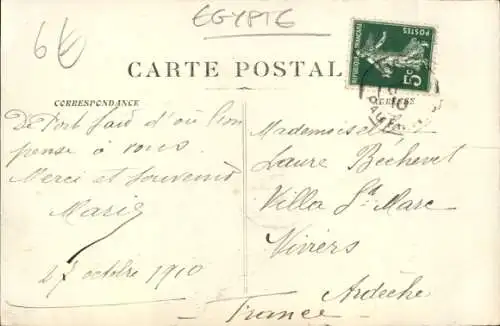 EGYPTE
6€
CARTE POSTALE
RÉPUBLIQUE FRANÇAISE
POSTES
5c
CORRESPONDANCE
De Port Saïd d'où l'on
pense à vous.
Merci et souvenir
Marie
27 octobre 1910
Mademoiselle
Laure Béchevet
Villa St Marc
Viviers
Ardèche
France